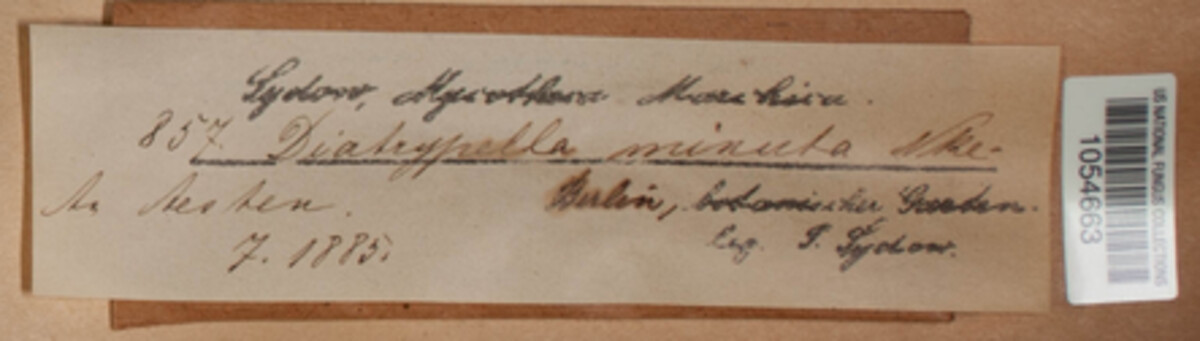 Sydow, Mycotheca Marchica.
857. Diatrypella minuta Nke.
An Aesten.
Berlin, botanischer Garten.
7. 1885.
leg. P. Sydow.
US NATIONAL FUNGUS COLLECTIONS
1054663